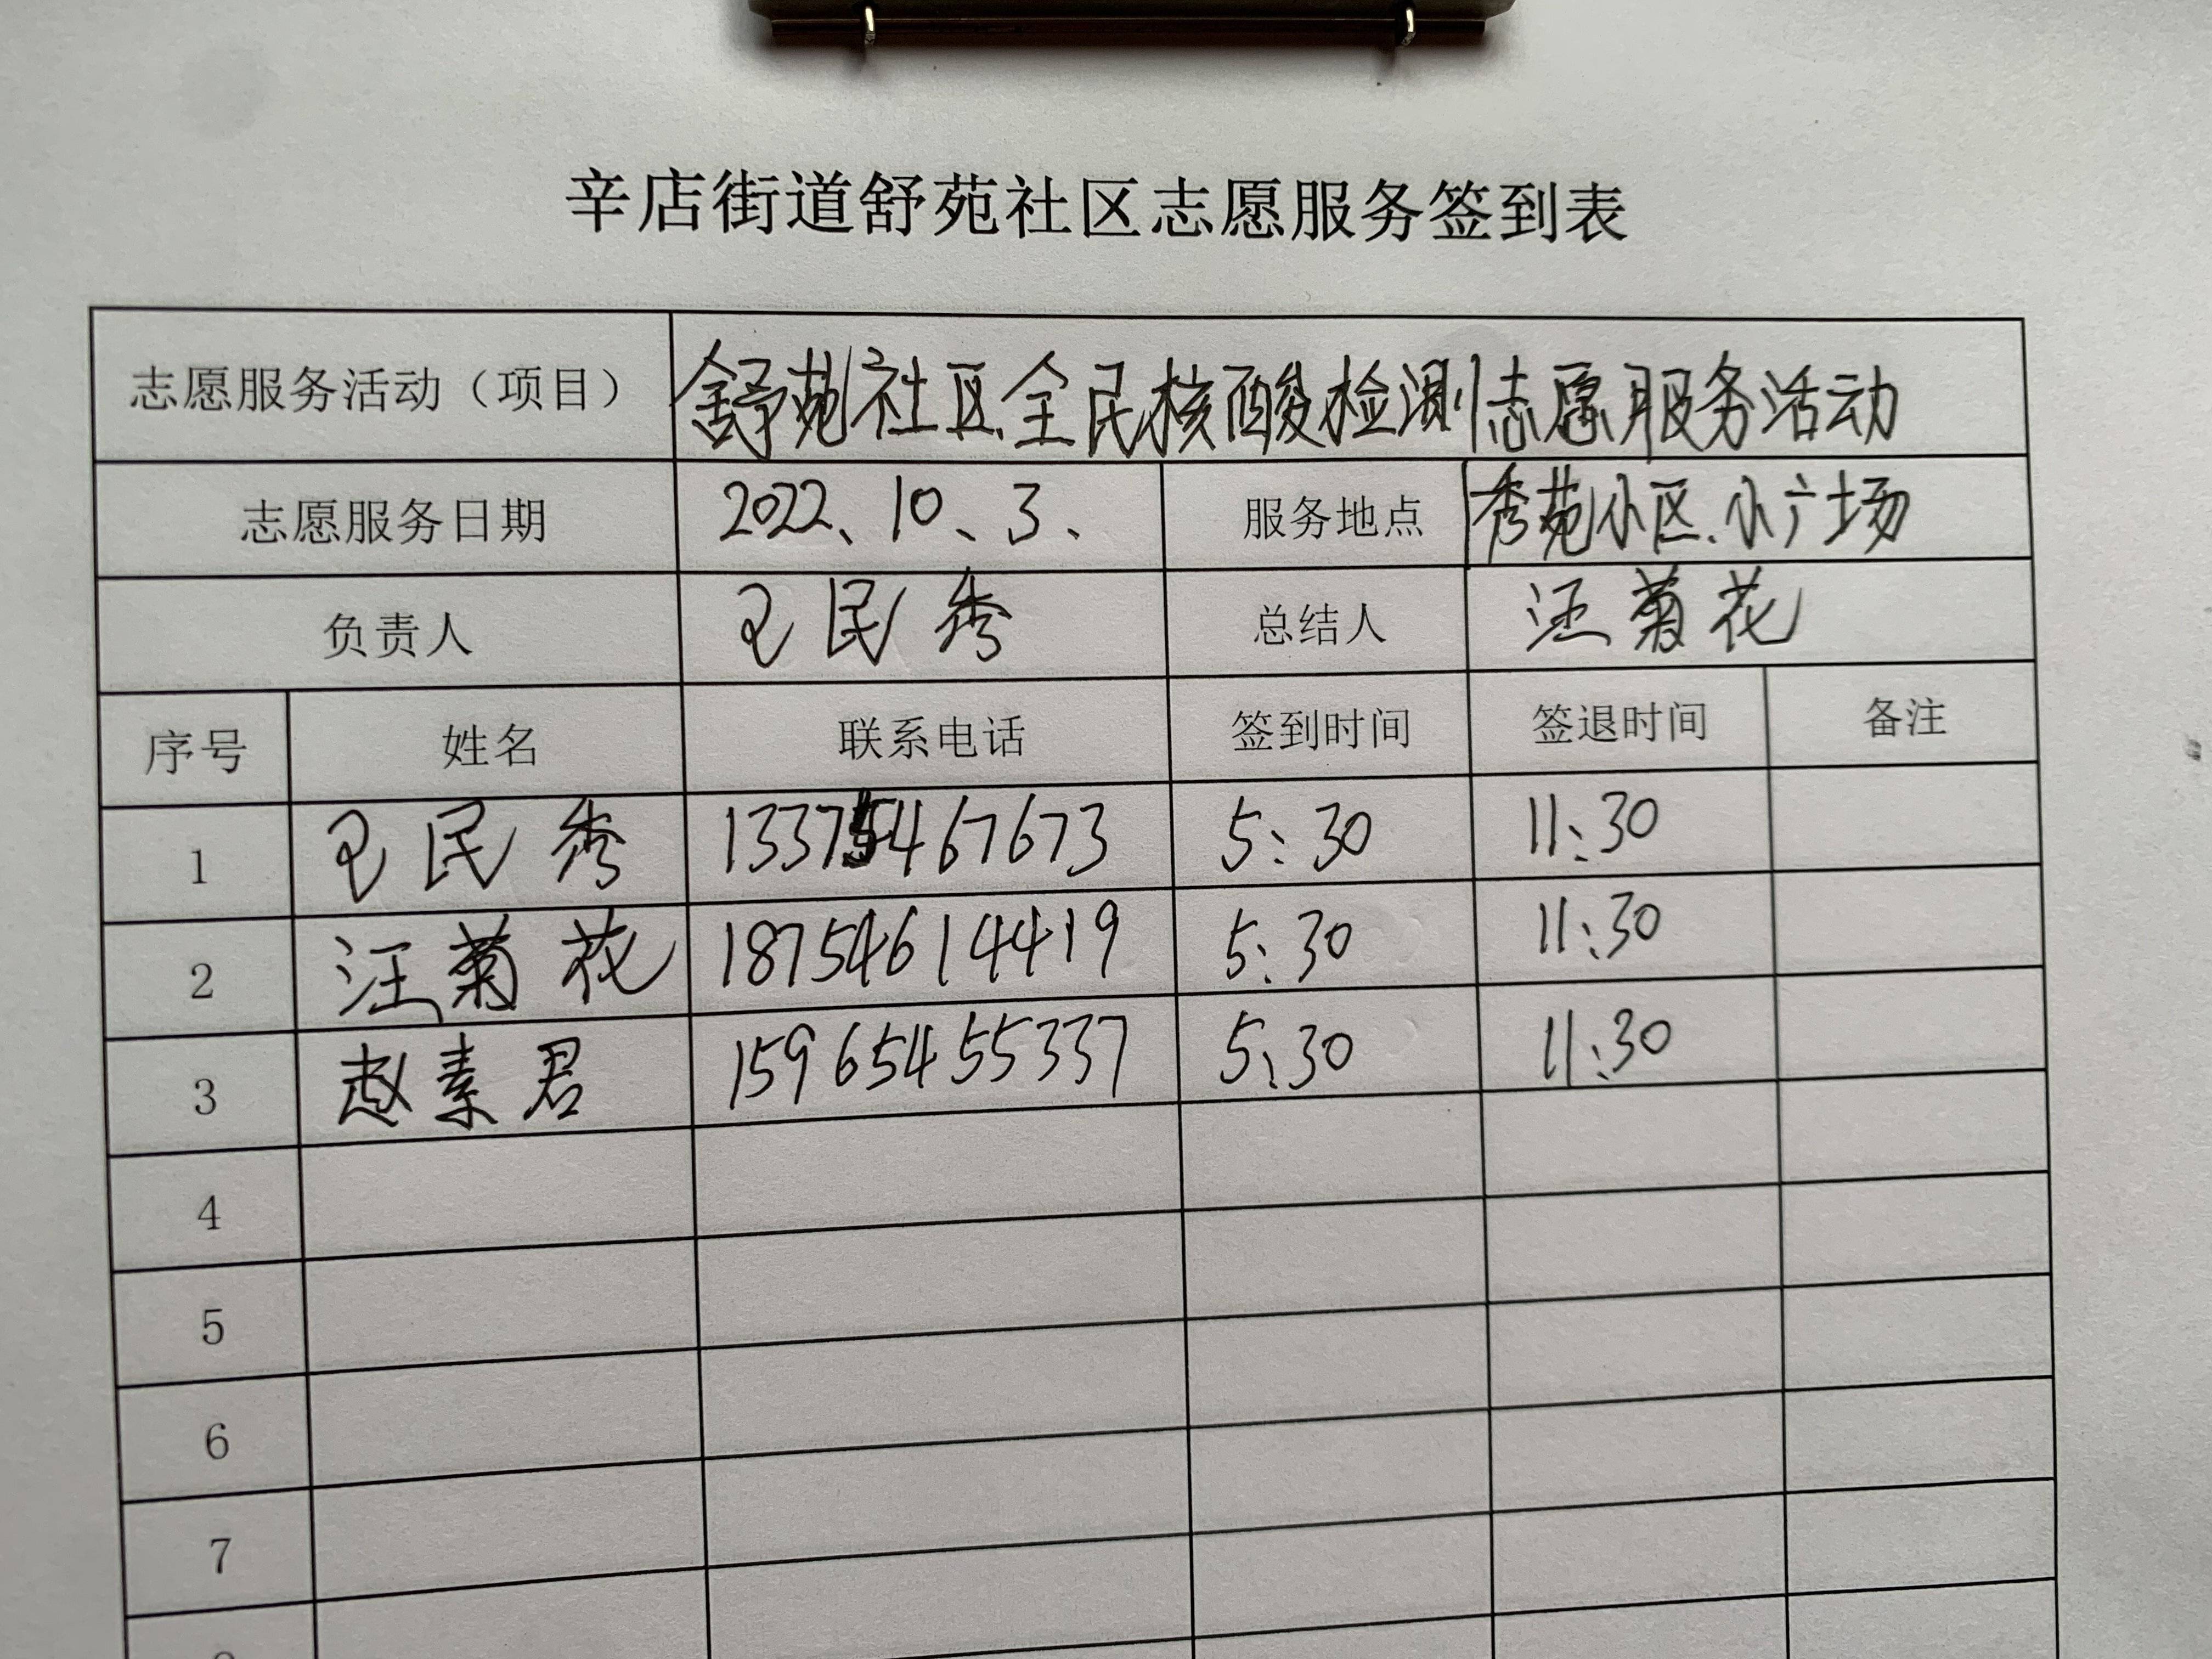 辛店街道舒苑社区志愿服务签到表
志愿服务活动（项目） 舒苑社区全民核酸检测志愿服务活动
志愿服务日期 2022、10、3、 服务地点 秀苑小区、小广场
负责人 王民秀 总结人 汪菊花
序号 姓名 联系电话 签到时间 签退时间 备注
1 王民秀 13375467673 5:30 11:30
2 汪菊花 18754614419 5:30 11:30
3 赵素君 15965455337 5:30 11:30
4
5
6
7